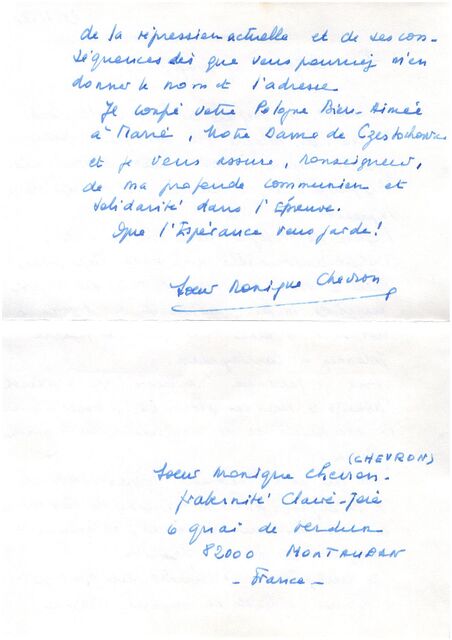 de la répression actuelle et de ses con-
séquences dès que vous pourriez m'en
donner le nom et l'adresse.
Je confie votre Pologne Bien-Aimée
à Marie, Notre Dame de Czestochowa
et je vous assure, Monseigneur,
de ma profonde communion et
solidarité dans l'Épreuve.
Que l'Espérance vous garde!
Soeur Monique Chevron
(CHEVRON)
Soeur Monique Chevron-
Fraternité Claire-Joie
6 quai de Verdun
82000 MONTAUBAN
- France -